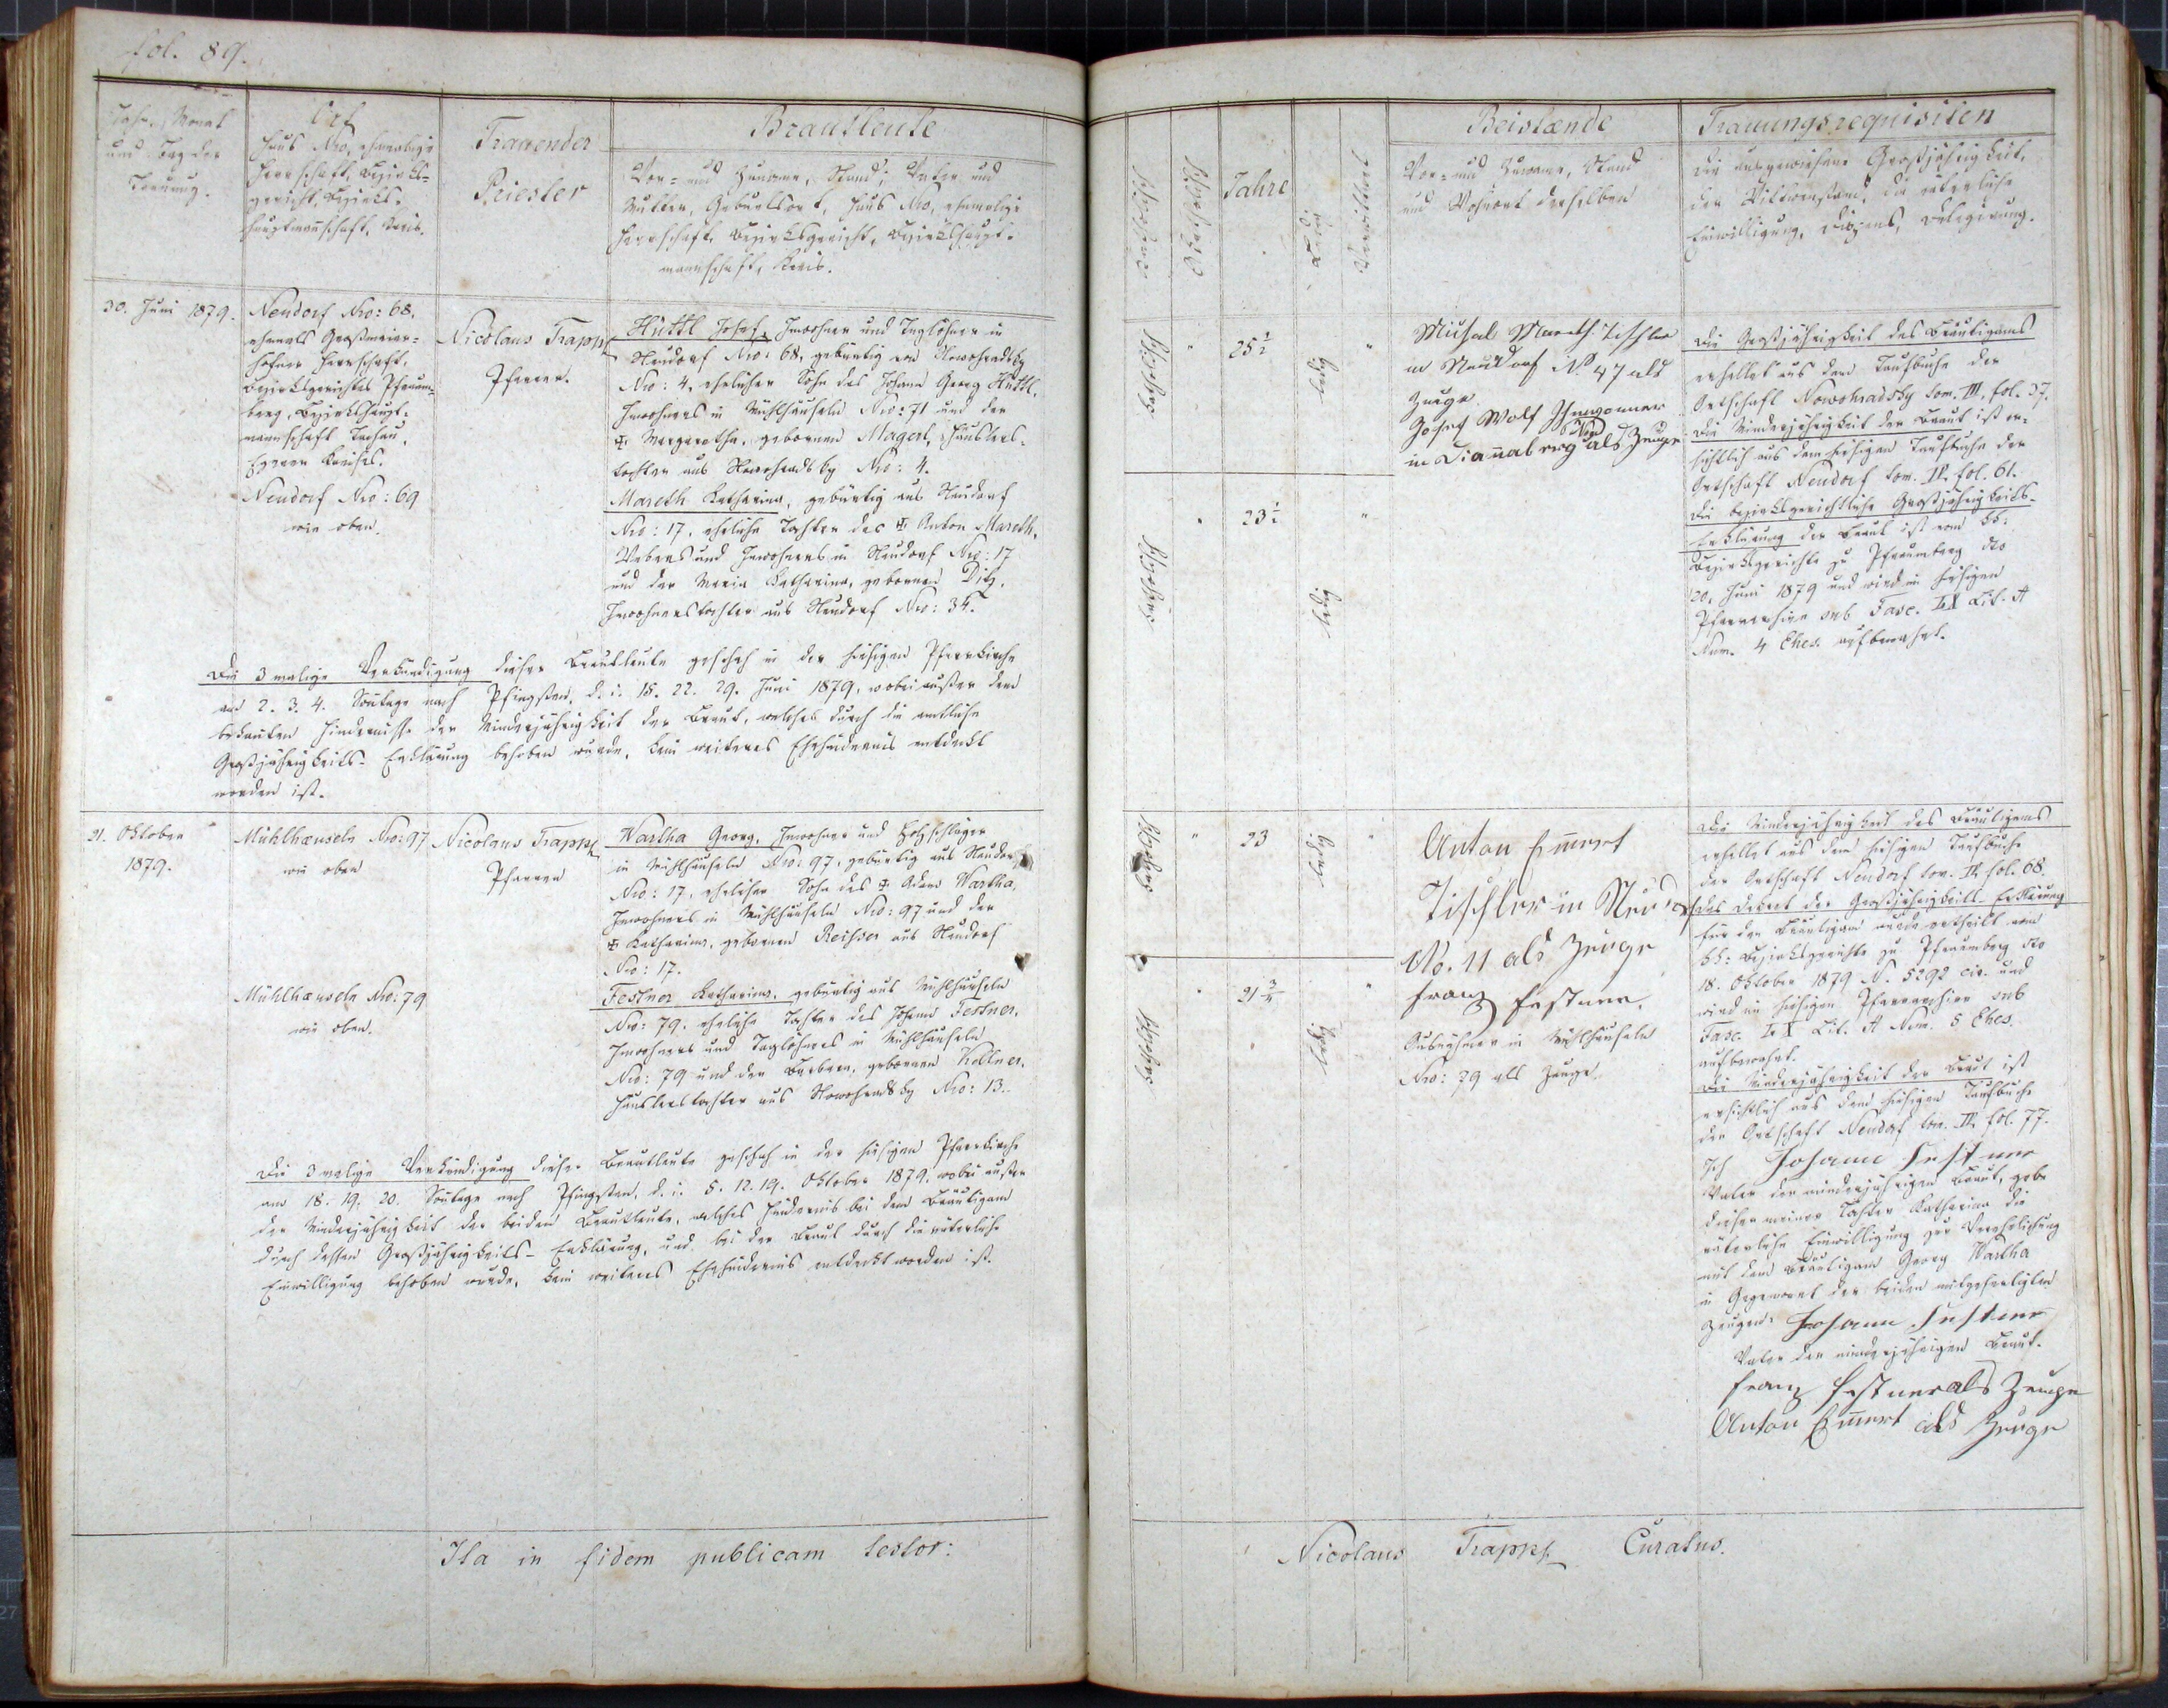 fol. 89.
Jahr, Monat
und Tag der
Trauung.
Ort
Haus Nro, ehemalige
Herrschaft, Bezirks-
gericht, Bezirks-
hauptmannschaft, Kreis.
Trauender
Priester
Brautleute
Vor- und Zuname, Stand; Vater und
Mutter, Geburtsort, Haus Nro, ehemalige
Herrschaft, Bezirksgericht, Bezirkshaupt-
mannschaft, Kreis.
30. Juni 1879.
Neudorf Nro: 68,
ehemals Großmeier-
höfner Herrschaft,
Bezirksgerichtes Pfraum-
berg, Bezirkshaupt-
mannschaft Tachau,
Egerer Kreises.
Neudorf Nro: 69
wie oben.
Nicolaus Trappl
Pfarrer.
Hüttl Josef, Inwohner und Taglöhner in
Neudorf Nro: 68, gebürtig von Nowohradsky
Nro: 4, ehelicher Sohn des Johann Georg Hüttl,
Inwohners in Mühlhäuseln Nro: 71 und der
Margaretha, gebornen Magerl, Häuslers-
tochter aus Nowohradsky Nro: 4.
Mareth Katharina, gebürtig aus Neudorf
Nro: 17, eheliche Tochter des Anton Mareth,
Webers und Inwohners in Neudorf Nro: 17
und der Maria Katharina, gebornen Ditz,
Inwohnerstochter aus Neudorf Nro: 34.
Die 3 malige Verkündigung dieser Brautleute geschah in der hiesigen Pfarrkirche
am 2. 3. 4. Sontage nach Pfingsten, d. i. 15. 22. 29. Juni 1879, wobei außer dem
bekanten Hindernisse der Minderjährigkeit der Braut, welches durch die amtliche
Großjährigkeits-Erklärung behoben wurde, kein weiteres Ehehindernis entdeckt
worden ist.
21. Oktober
1879.
Mühlhæuseln Nro: 97
wie oben
Mühlhæuseln Nro: 79
wie oben.
Nicolaus Trappl
Pfarrer
Wartha Georg, Inwohner und Holzschläger
in Mühlhäuseln Nro: 97, gebürtig aus Neudorf
Nro: 17, ehelicher Sohn des Adam Wartha,
Inwohners in Mühlhäuseln Nro: 97 und der
Katharina, gebornen Reisser aus Neudorf
Nro: 17.
Festner Katharina, gebürtig aus Mühlhäuseln
Nro: 79, eheliche Tochter des Johann Festner,
Inwohners und Taglöhners in Mühlhäuseln
Nro: 79 und der Barbara, gebornen Kellner,
Häuslerstochter aus Nowohradsky Nro: 13.
Die 3 malige Verkündigung dieser Brautleute geschah in der hiesigen Pfarrkirche
am 18. 19. 20. Sontage nach Pfingsten, d. i. 5. 12. 19. Oktober 1879, wobei außer
der Minderjährigkeit der beiden Brautleute, welches Hindernis bei dem Bräutigam
durch dessen Großjährigkeits-Erklärung, und bei der Braut durch die väterliche
Einwilligung behoben wurde, kein weiteres Ehehindernis entdeckt worden ist.
Ita in fidem publicam testor:
Jahre
Beistænde
Vor- und Zuname, Stand
und Wohnort derselben
Trauungsrequisiten
Die ausgewiesene Großjährigkeit,
der Witwenstand, die väterliche
Einwilligung, Dispens, Delegierung.
katholisch
"
25 1/2
ledig
"
katholisch
"
23 1/2
ledig
"
Michal Mareth Tischler
in Neudorf N 47 als
Zeuge
Josef Wolf
in als Zeuge
Die Großjährigkeit des Bräutigams
erhellet aus dem Taufbuche der
Ortschaft Nowohradsky tom. III. fol. 37.
Die Minderjährigkeit der Braut ist er-
sichtlich aus dem hiesigen Taufbuche der
Ortschaft Neudorf tom. II. fol. 61.
Die bezirksgerichtliche Großjährigkeits-
Erklärung der Braut ist vom kk:
Bezirksgerichte zu Pfraumberg dto
20. Juni 1879 und wird im hiesigen
Pfarrarchive sub Fasc. Lit. A
Num. 4 Ehes. aufbewahrt.
katholisch
"
23
ledig
"
katholisch
"
21 3/4
ledig
"
Anton Emmert
Tischler in Neudorf
No. 11 als Zeuge
Franz Festner
Ausnehmer in Mühlhäuseln
Nro: 79 als Zeuge.
Die Minderjährigkeit des Bräutigams
erhellet aus dem hiesigen Taufbuche
der Ortschaft Neudorf tom. II fol. 68.
Das Dekret der Großjährigkeits-Erklärung
für den Bräutigam wurde ertheilt vom
kk: Bezirksgerichte zu Pfraumberg dto
18. Oktober 1879 N. 5292 civ. und
wird im hiesigen Pfarrarchive sub
Fasc. Lit. A Num. 5 Ehes.
aufbewahrt.
Die Minderjährigkeit der Braut ist
ersichtlich aus dem hiesigen Taufbuche
der Ortschaft Neudorf tom. II fol. 77.
Ich Johann Festner
Vater der minderjährigen Braut, gebe
dieser meiner Tochter Katharina die
väterliche Einwilligung zur Verehelichung
mit dem Bräutigam Georg Wartha
in Gegenwart der beiden mitgefertigten
Zeugen. Johann Festner
Vater der minderjährigen Braut.
Franz Festner als Zeuge
Anton Emmert als Zeuge
Nicolaus Trappl Curatus.